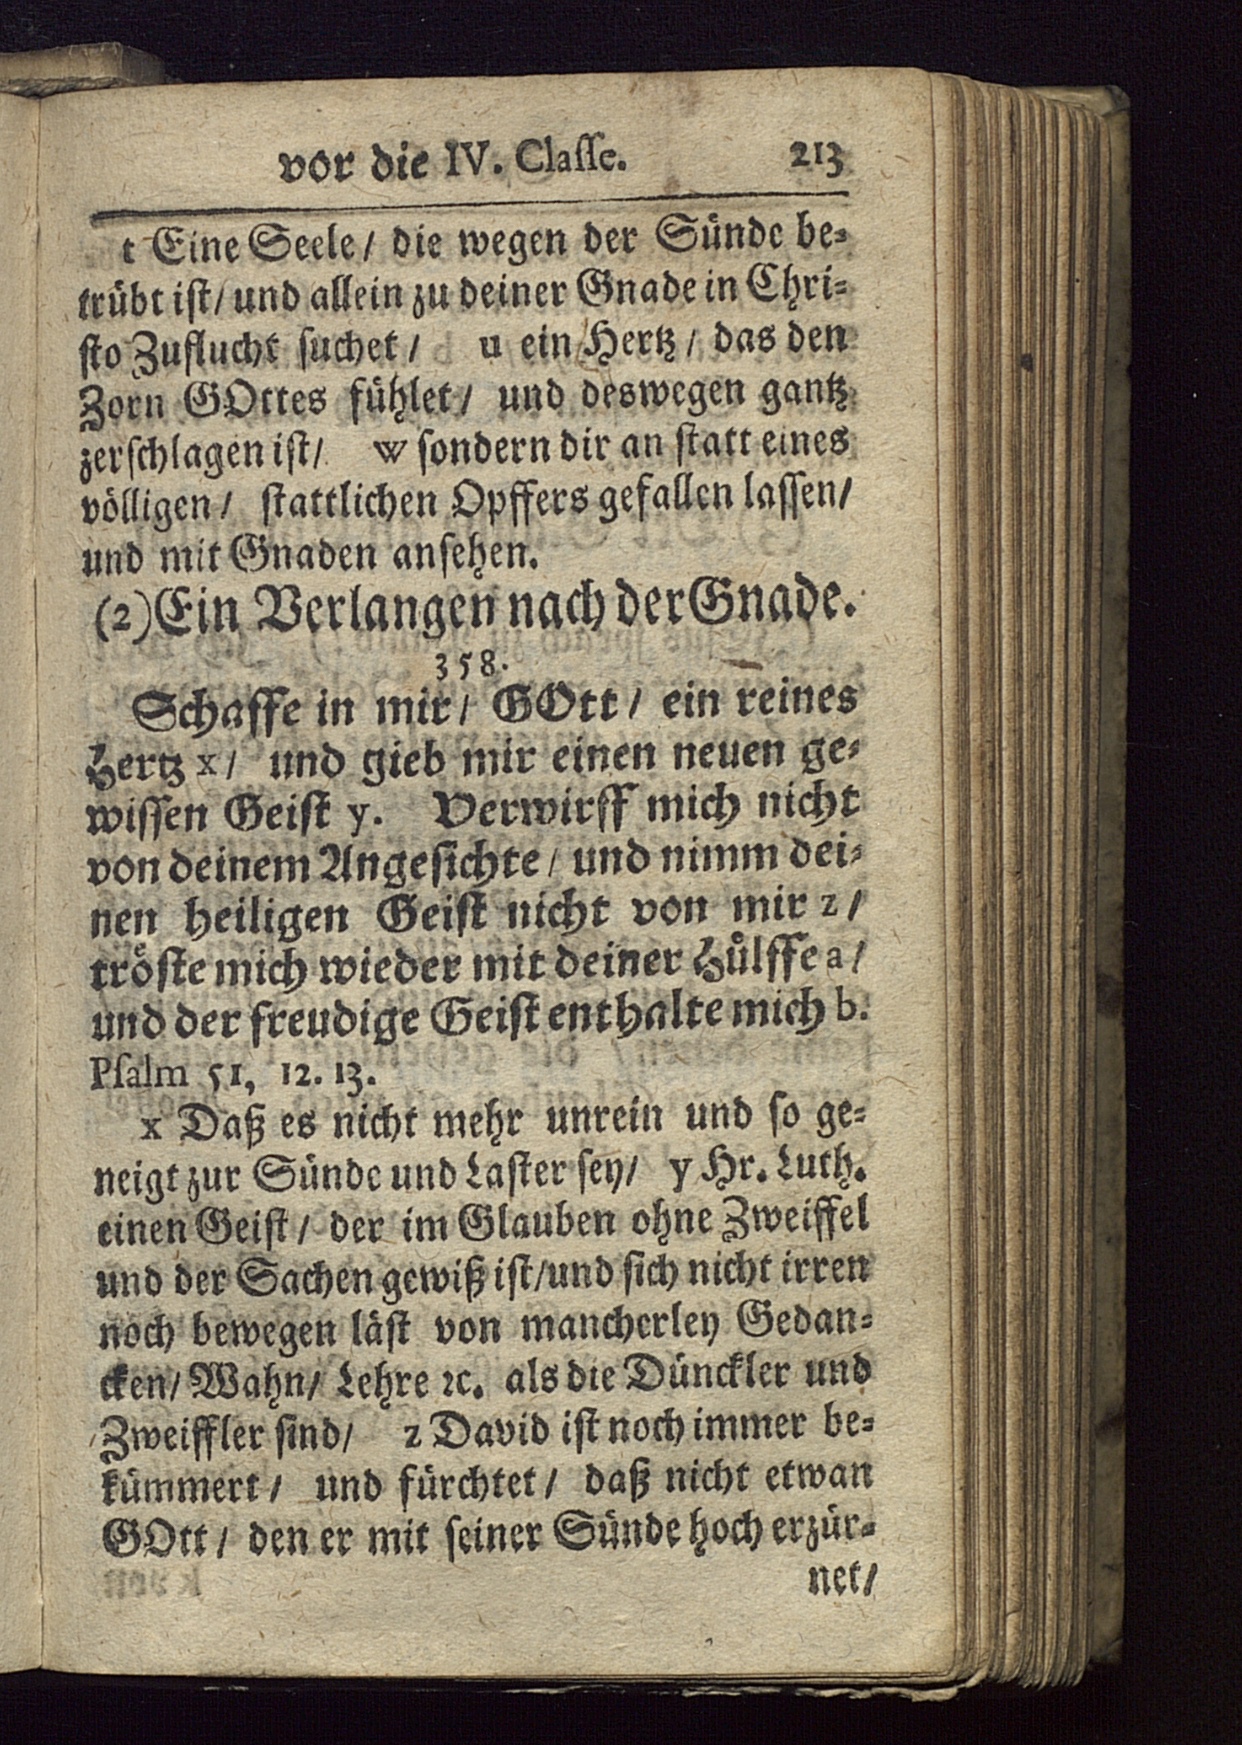 vor die IV. Classe. 213
t Eine Seele / die wegen der Sünde be-
trübt ist / und allein zu deiner Gnade in Chri-
sto Zuflucht suchet / u ein Hertz / das den
Zorn GOttes fühlet / und deswegen gantz
zerschlagen ist / w sondern dir an statt eines
völligen / stattlichen Opffers gefallen lassen /
und mit Gnaden ansehen.
(2) Ein Verlangen nach der Gnade.
358.
Schaffe in mir / GOtt / ein reines
Hertz x / und gieb mir einen neuen ge-
wissen Geist y. Verwirff mich nicht
von deinem Angesichte / und nimm dei-
nen heiligen Geist nicht von mir z /
tröste mich wieder mit deiner Hülffe a /
und der freudige Geist enthalte mich b.
Psalm 51, 12. 13.
x Daß es nicht mehr unrein und so ge-
neigt zur Sünde und Laster sey / y Hr. Luth.
einen Geist / der im Glauben ohne Zweiffel
und der Sachen gewiß ist / und sich nicht irren
noch bewegen läst von mancherley Gedan-
cken / Wahn / Lehre ꝛc. als die Dünckler und
Zweiffler sind / z David ist noch immer be-
kümmert / und fürchtet / daß nicht etwan
GOtt / den er mit seiner Sünde hoch erzür-
net /